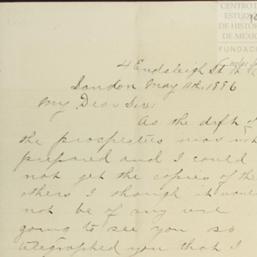 CENTRO D
ESTUD
DE HISTÓR
DE MÉXIC
FUNDACI
4 Endsleigh St
London May 11th 1886
My Dear Sir:
As the dft of
the prospectus was not
prepared and I could
not get the copies of the
others I though it would
not be of any use
going to see you so
telegraphed you that I